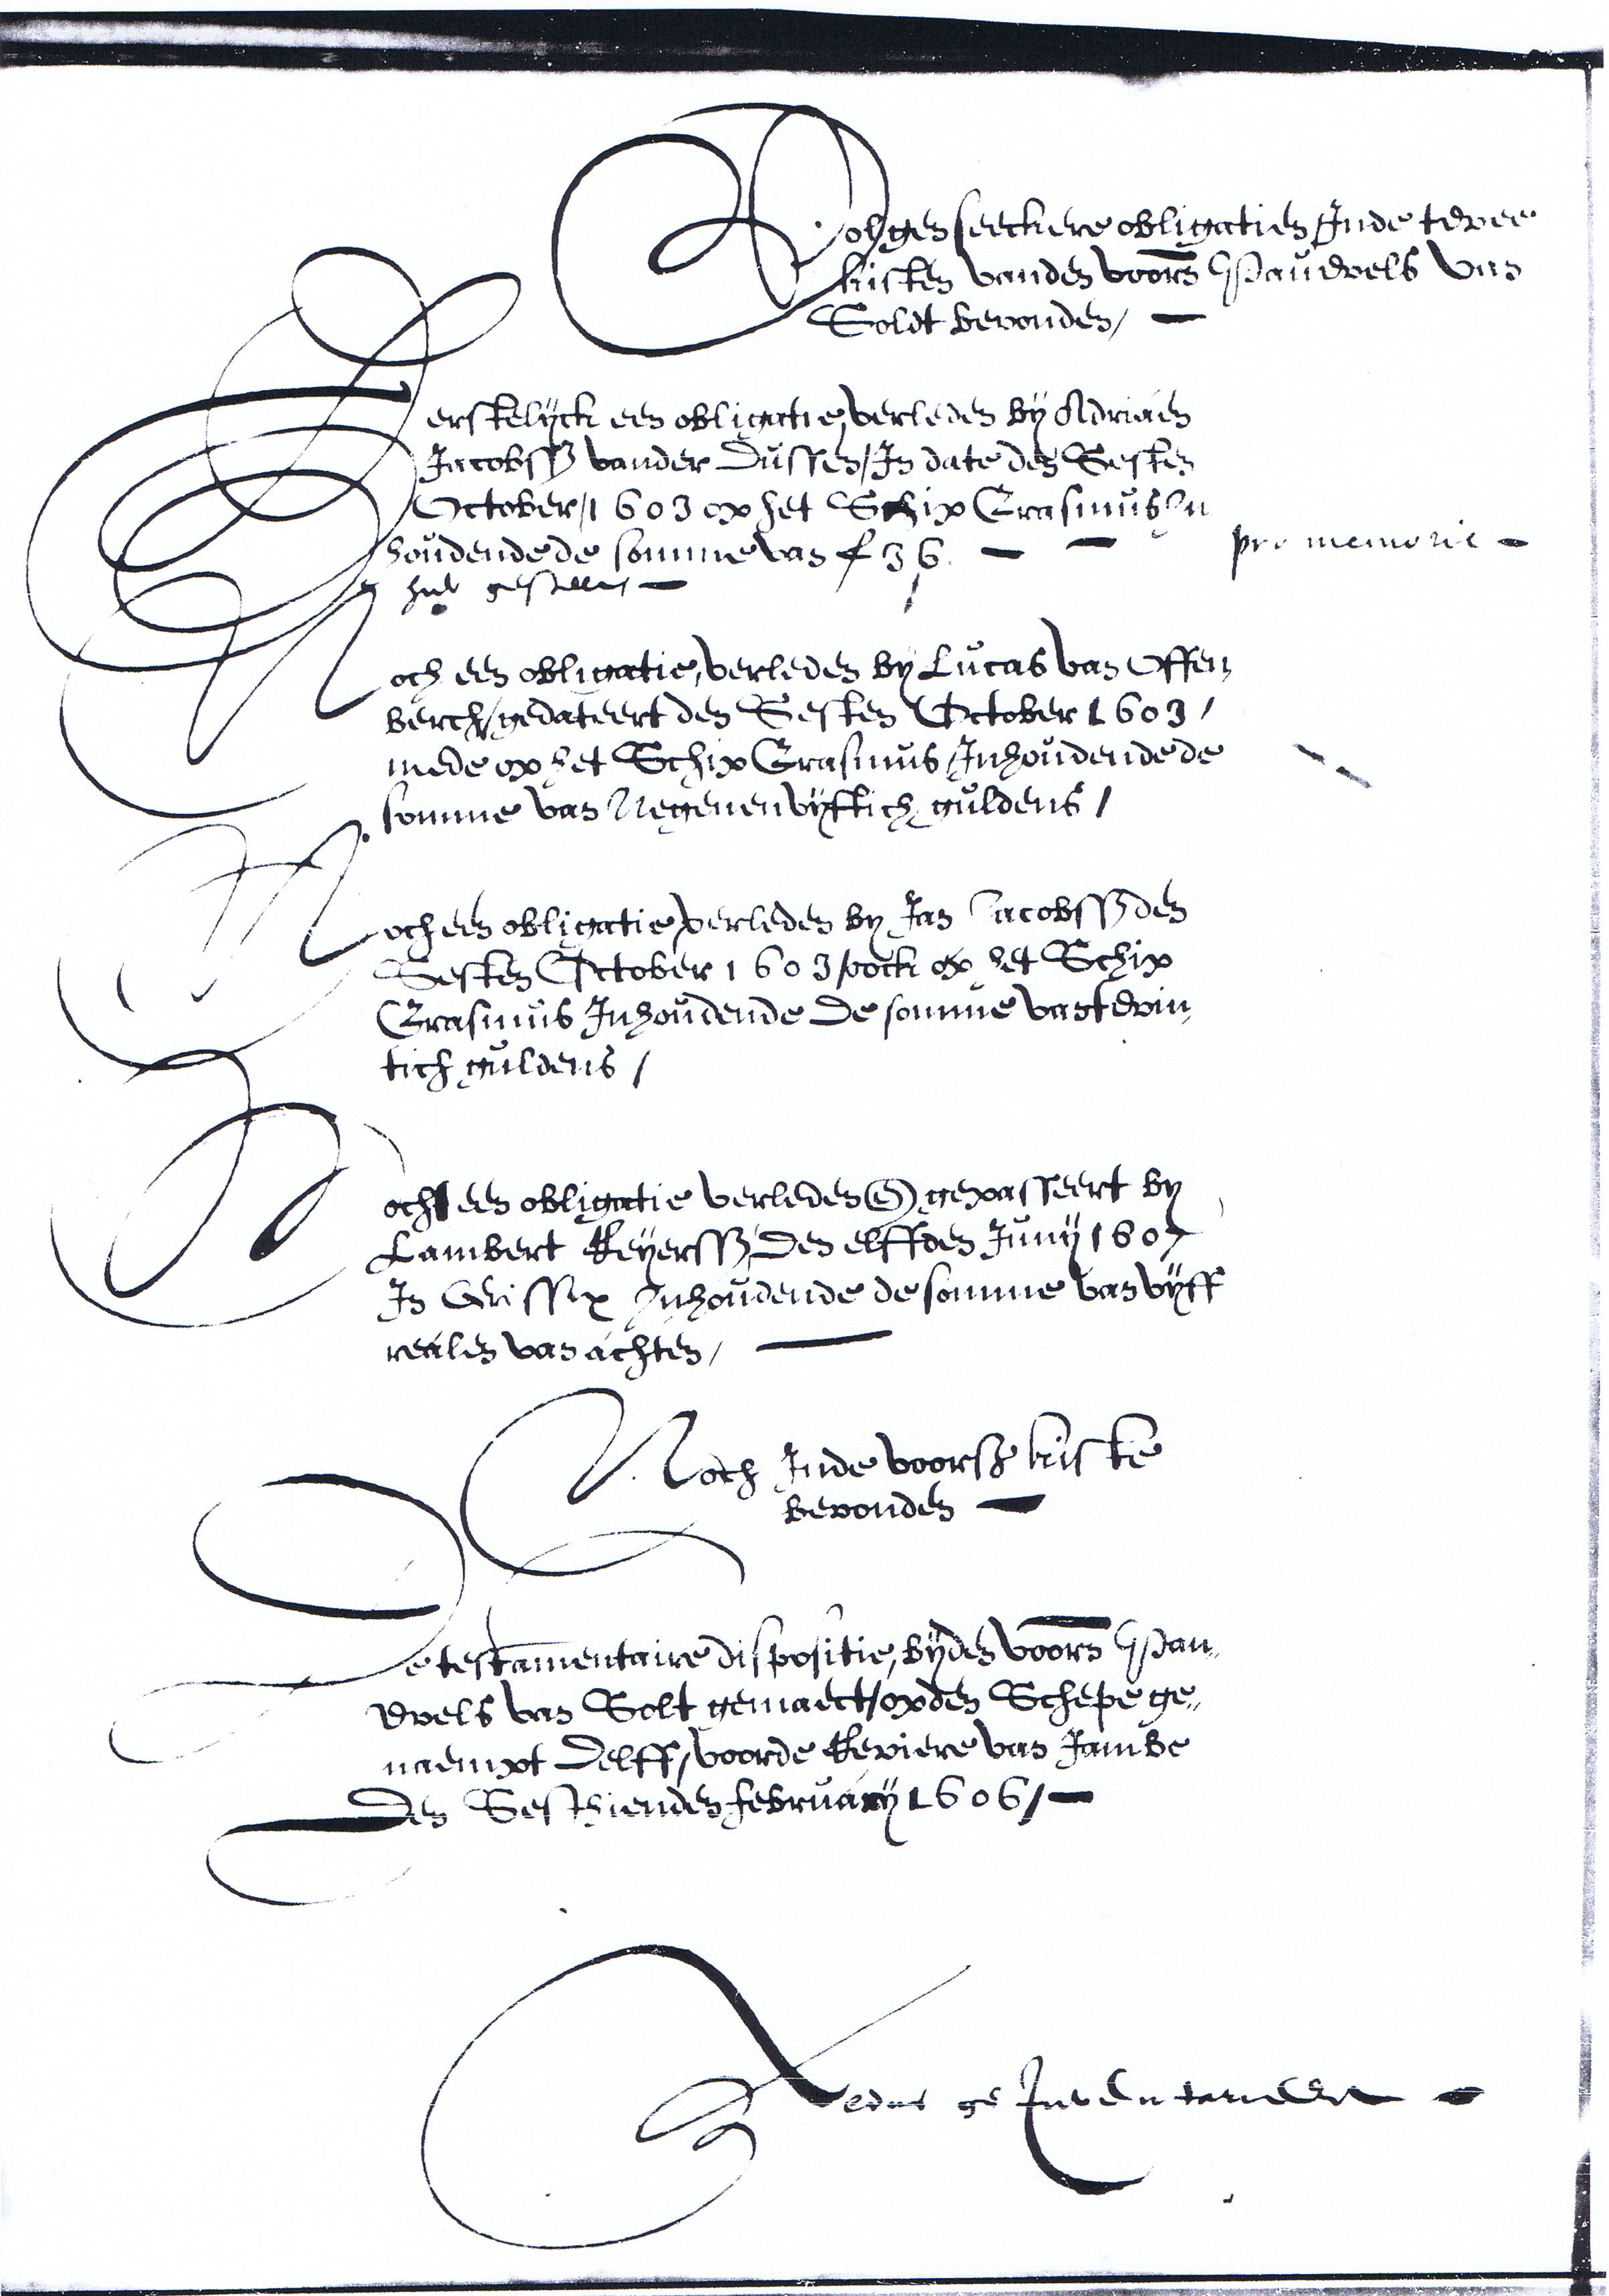 Volgen seeckere obligatien Inde twee
kisten vanden voors Pauwels van
Soldt bevonden /
Eerstelyck een obligatie, verleden by Adriaen
Jacobssz vander Dussen / In date den Sesten
October / 1603 op het Schip Erasmus In
houdende de somme van f 36.
pro memorie
Noch een obligatie, verleden by Lucas van Offen
berch / gedateert den Sesten October 1603 /
mede op het Schip Erasmus / Inhoudende de
somme van Negenenvyftich guldens /
Noch een obligatie verleden by Jan Jacobssz den
Sesten October 1603 / oock op het Schip
Erasmus Inhoudende de somme van twin
tich guldens /
Noch een obligatie verleden (en) gepasseert by
Lambert Reyerssz, den elffden Juny 1607
In Grissix Inhoudende de somme van vyff
realen van achten /
Noch Inde voorsz kiste
bevonden
De testamentaire dispositie, by den voors Pau„
wels van Solt gemaect / op den Schepe ge„
naempt Delff / voor de Reviere van Jambe
Den Sesthienden february 1606 /
Aldus geInventarieert